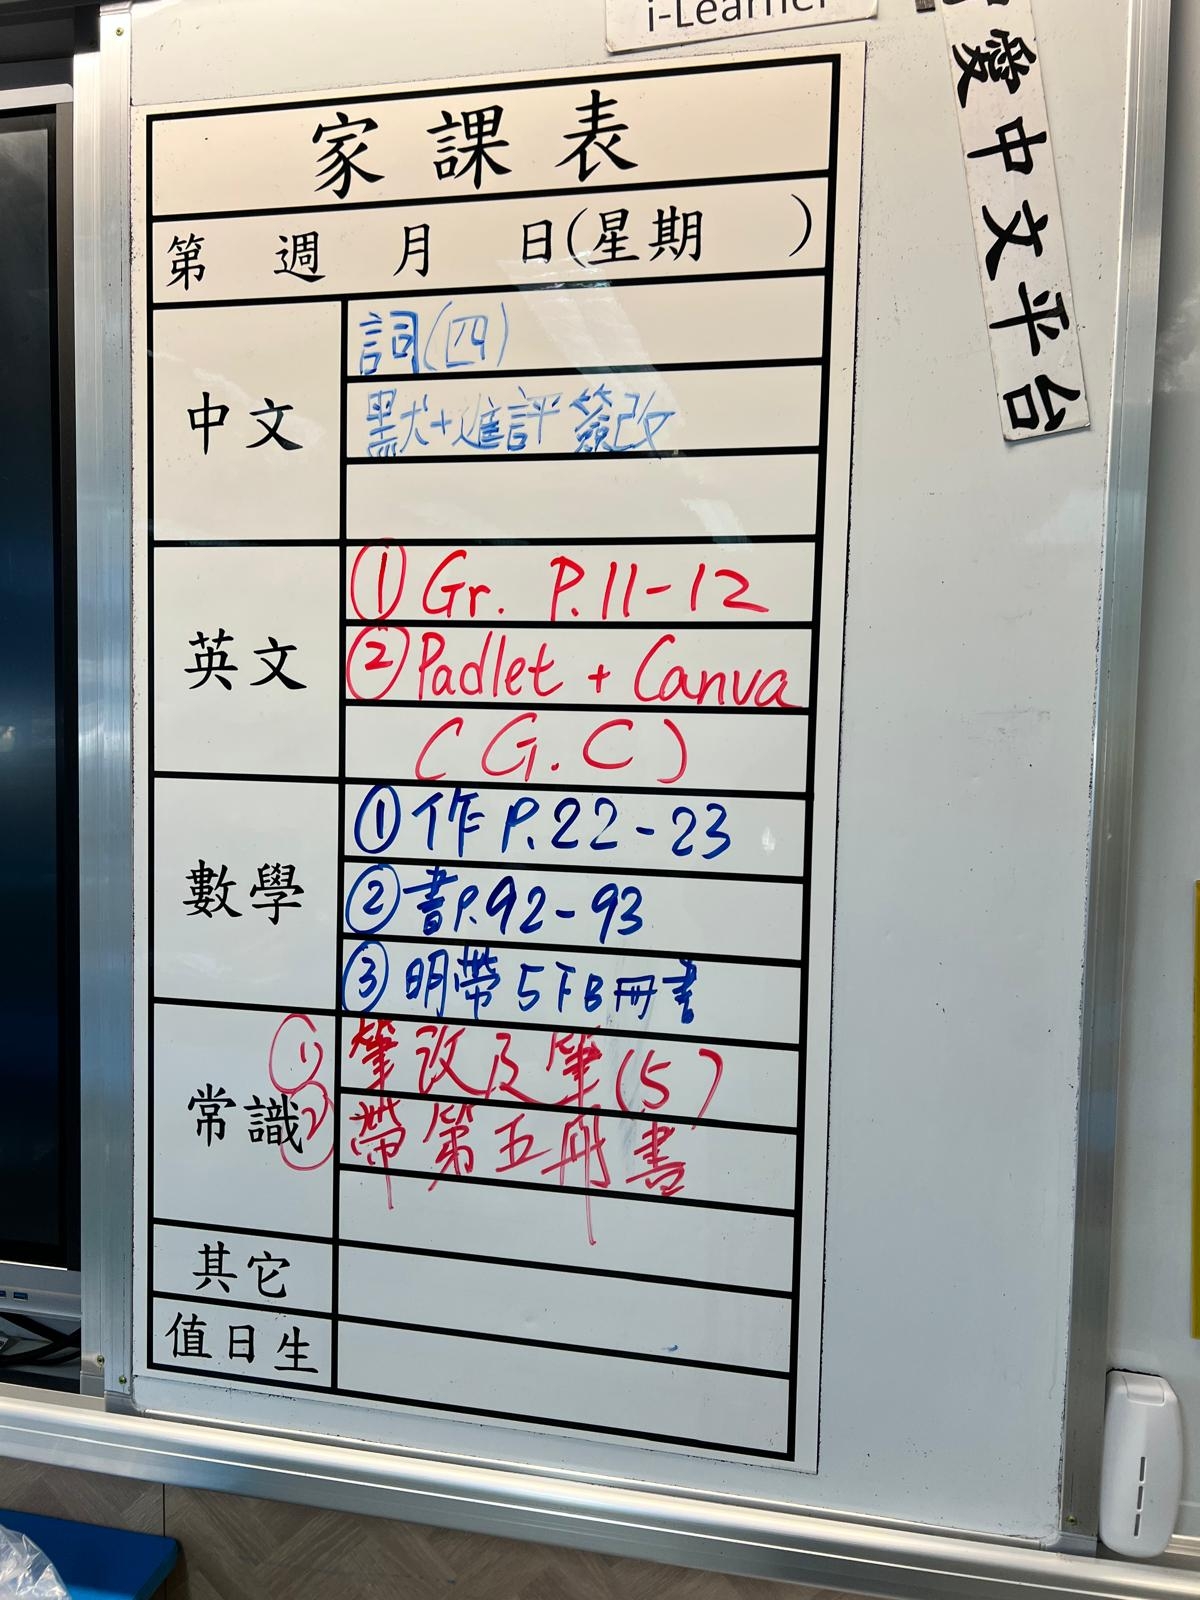 i-Learner
愛中文平台
家課表
第 週 月 日(星期 )
中文
詞(四)
默+進評簽改
英文
① Gr. P.11-12
② Padlet + Canva
(G.C)
數學
① 作 P.22-23
② 書P.92-93
③ 明帶5下B冊書
常識
① 筆改及筆(5)
② 帶第五冊書
其它
值日生